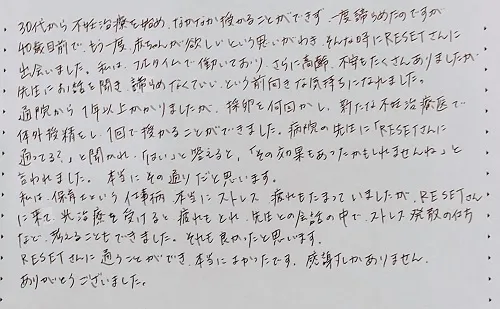 30代から不妊治療を始め、なかなか授かることができず、一度諦めたのですが
40歳目前で、もう一度、赤ちゃんが欲しいという思いがわき、そんな時にRESETさんに
出会いました。私は、フルタイムで働いており、さらに高齢、不安もたくさんありましたが、
先生にお話を聞き、諦めなくていい、という前向きな気持ちになれました。
通院から1年以上かかりましたが、採卵を何回かし、新たな不妊治療医で
体外受精をし、1回で授かることができました。病院の先生に「RESETさんに
通ってる?」と聞かれ、「はい」と答えると、「その効果もあったかもしれませんね」と
言われました。本当にその通りだと思います。
私は、保育士という仕事柄、本当にストレス、疲れもたまっていましたが、RESETさん
に来て、光治療を受けると疲れもとれ、先生との会話の中で、ストレス発散の仕方
など、考えることもできました。それも良かったと思います。
RESETさんに通うことができ、本当によかったです。感謝しかありません。
ありがとうございました。